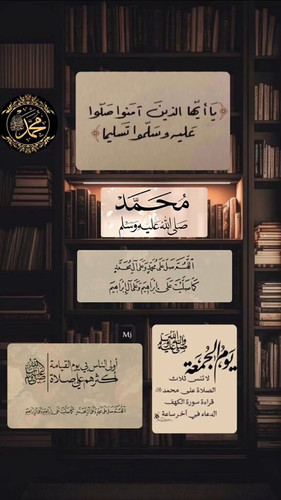 محمد
يا أيها الذين آمنوا صلوا
عليه وسلموا تسليما
مُحَمَّد
صَلَى اللهُ عَلَيْه وَسَلَّم
اللَّهُمَّ صَلِّ عَلَى مُحَمَّدٍ وَعَلَى آلِ مُحَمَّدٍ
كَمَا صَلَّيْتَ عَلَى إِبْرَاهِيمَ وَعَلَى آلِ إِبْرَاهِيمَ
Mj
أولى الناس بي يوم القيامة
أكثرهم علي صلاة
ﷺ
يوم الجمعة
لا تنس ثلاث
الصلاة على محمد ﷺ
قراءة سورة الكهف
الدعاء في آخر ساعة